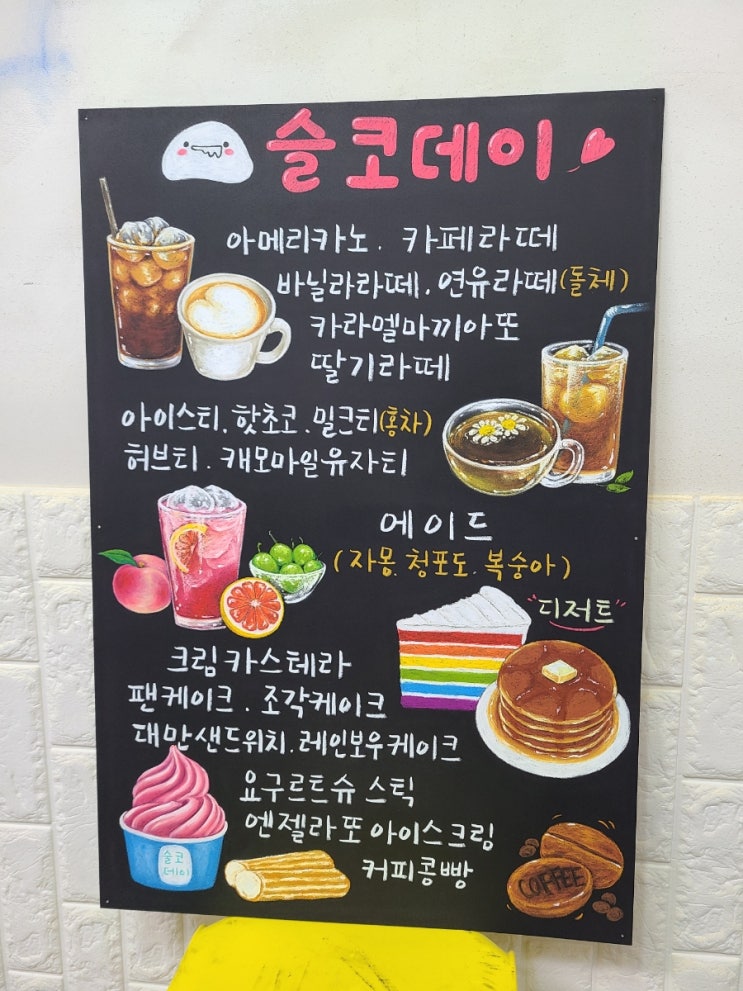 슬코데이
아메리카노. 카페라떼
바닐라라떼. 연유라떼(돌체)
카라멜마끼아또
딸기라떼
아이스티. 핫초코. 밀크티(홍차)
허브티. 캐모마일유자티
에이드
(자몽. 청포도. 복숭아)
"디저트"
크림카스테라
팬케이크. 조각케이크
대만샌드위치. 레인보우케이크
요구르트슈 스틱
엔젤라또 아이스크림
커피콩빵
슬코
데이
COFFEE